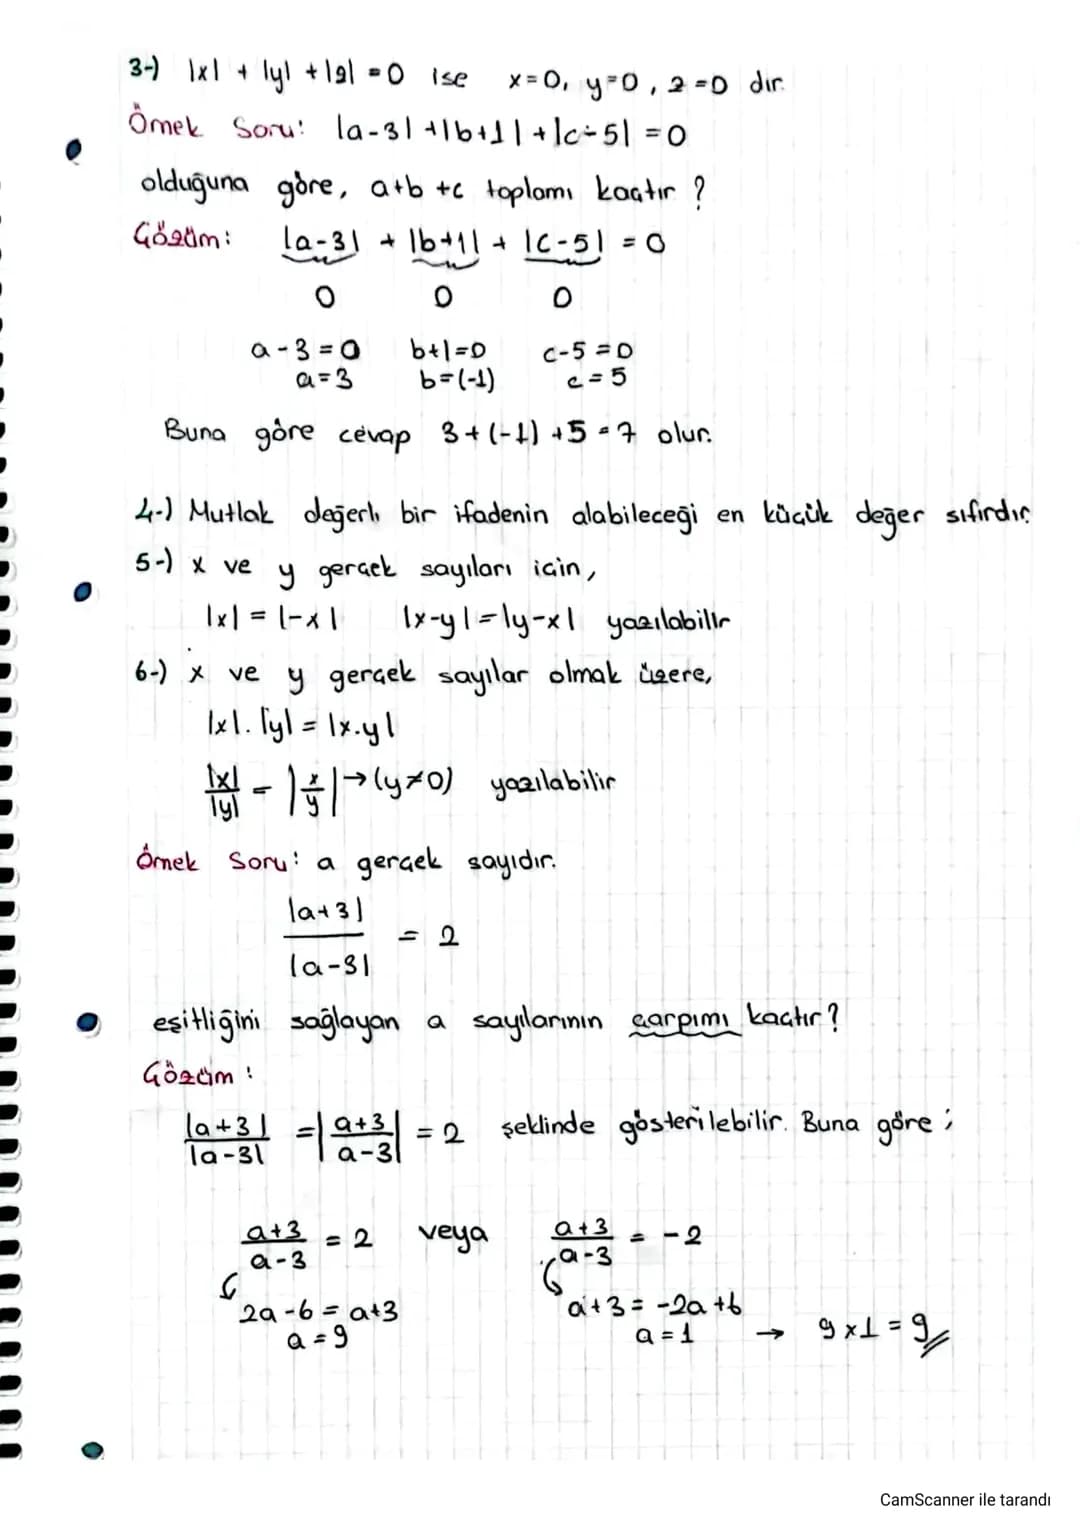 3-) |x| + |y| + |z| = 0 ise x=0, y=0, z=0 dır.
Örnek Soru: |a-3| + |b+1| + |c-5| = 0
olduğuna göre, a+b+c toplamı kaçtır?
Çözüm: |a-3| + |b+1| + |c-5| = 0
0 0 0
a-3=0 b+1=0 c-5=0
a=3 b=(-1) c=5
Buna göre cevap 3+(-1)+5=7 olur.
4-) Mutlak değerli bir ifadenin alabileceği en küçük değer sıfırdır.
5-) x ve y gerçek sayıları için,
|x| = |-x| |x-y| = |y-x| yazılabilir
6-) x ve y gerçek sayılar olmak üzere,
|x|.|y| = |x.y|
|x|/|y| = |x/y| → (y≠0) yazılabilir
Örnek Soru: a gerçek sayıdır.
|a+3|/|a-3| = 2
eşitliğini sağlayan a sayılarının çarpımı kaçtır?
Çözüm:
|a+3|/|a-3| = |a+3/a-3| = 2 şeklinde gösterilebilir. Buna göre;
a+3/a-3 = 2 veya a+3/a-3 = -2
2a-6 = a+3 a+3 = -2a+6
a=9 a=1 → 9x1=9
CamScanner ile tarandı